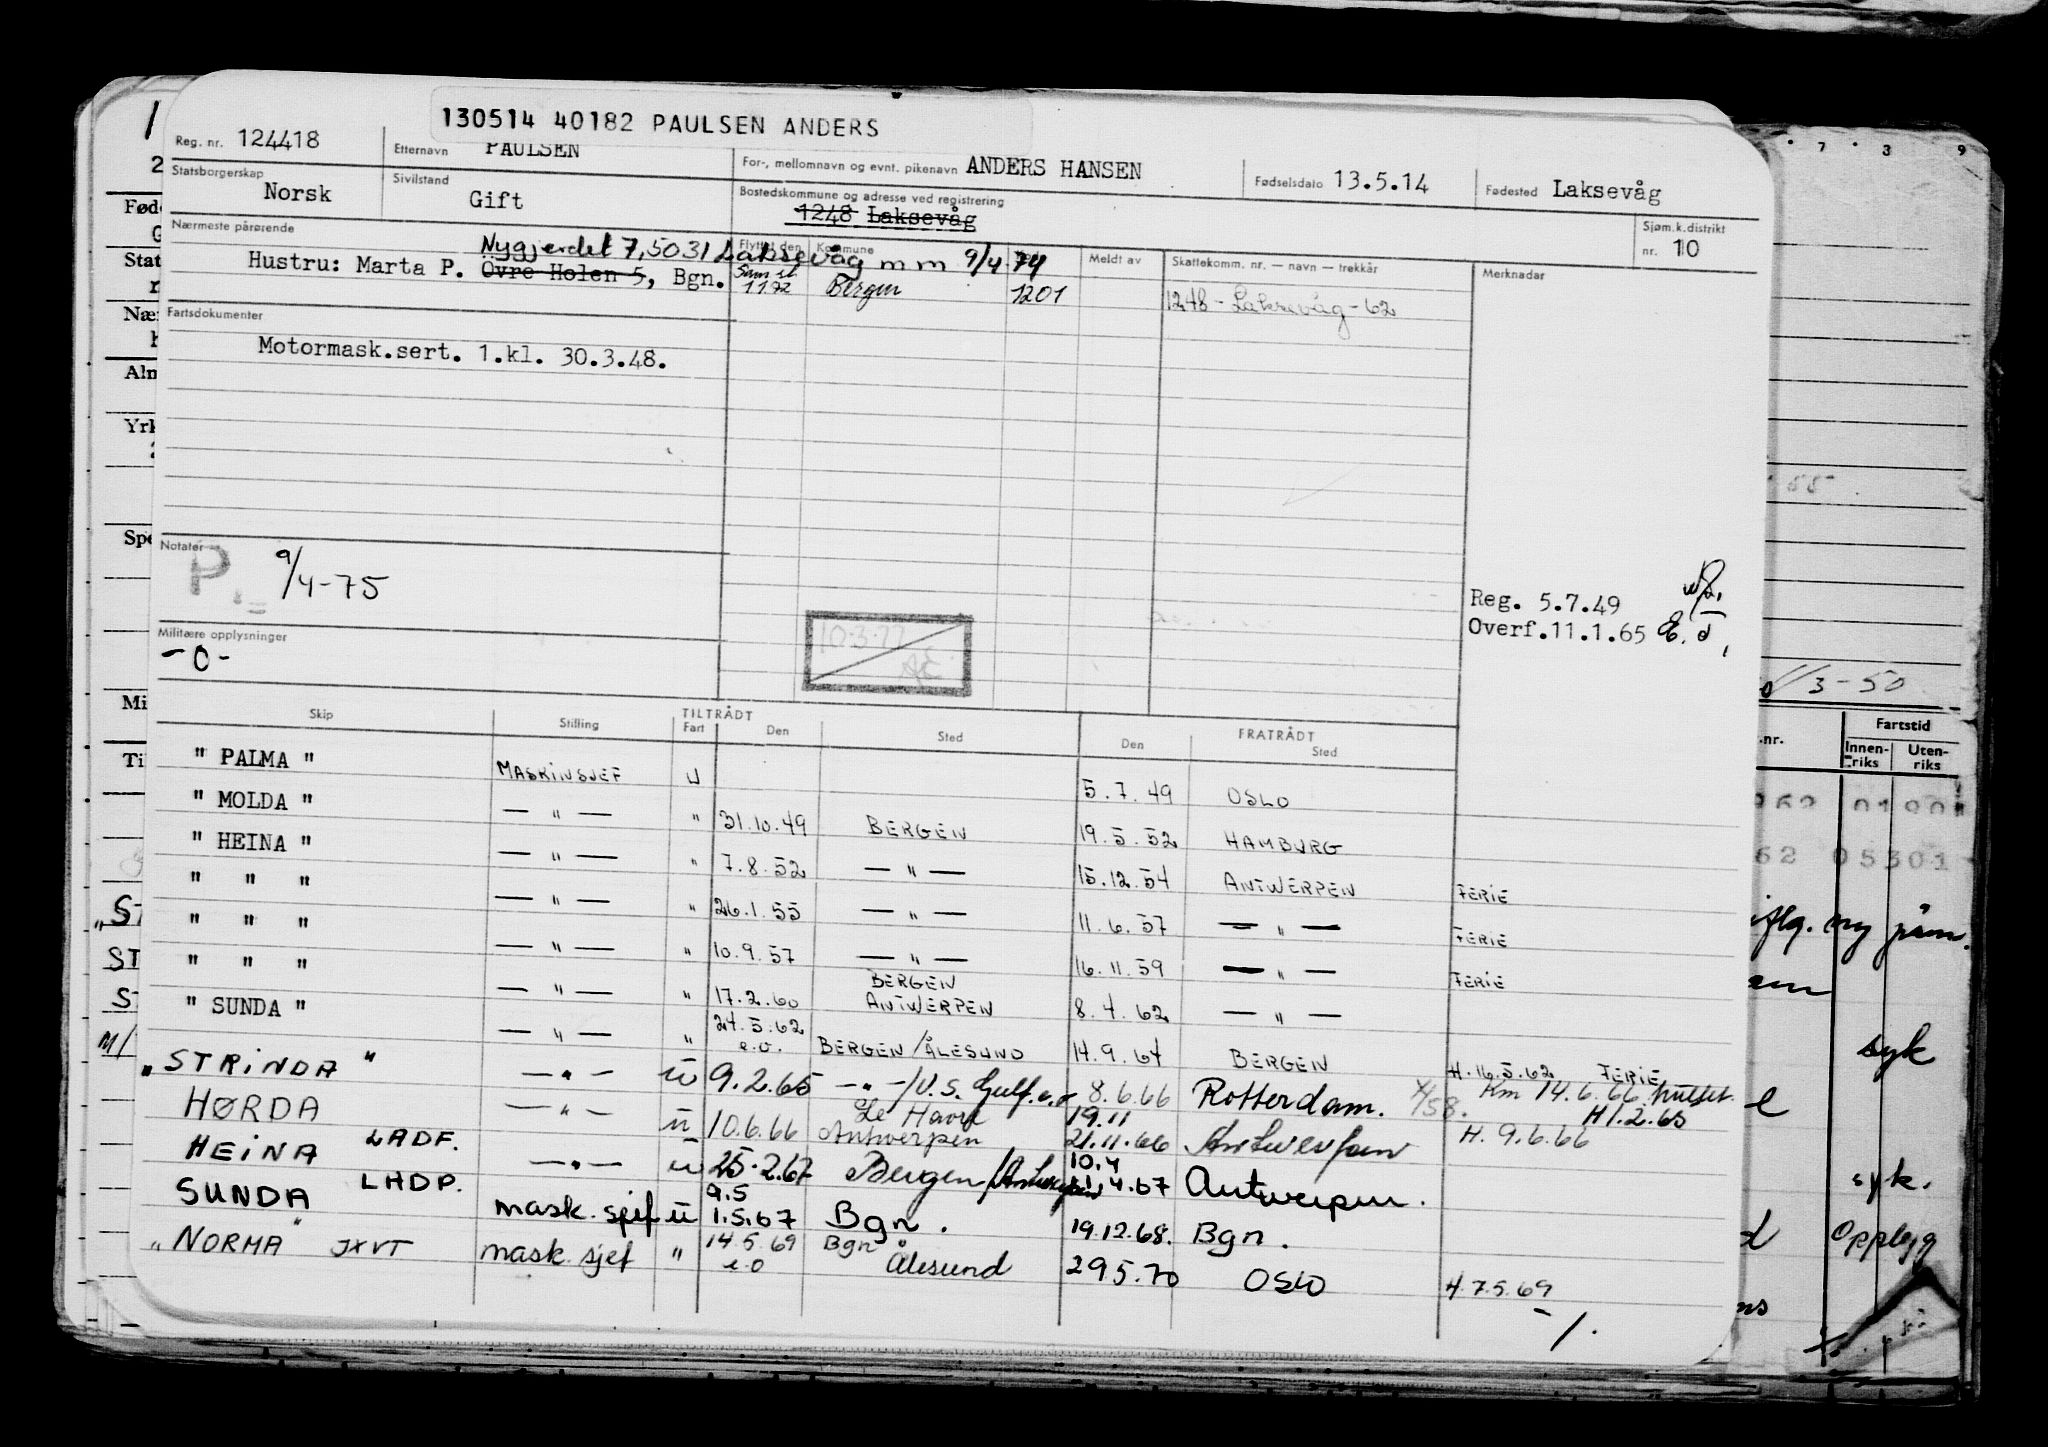 130514 40182 PAULSEN ANDERS
Reg. nr. 124418 Etternavn PAULSEN For-, mellomnavn og evnt. pikenavn ANDERS HANSEN Fødselsdato 13.5.14 Fødested Laksevåg
Statsborgerskap Norsk Sivilstand Gift Bostedskommune og adresse ved registrering 1248 Laksevåg Sjøm.k.distrikt nr. 10
Nærmeste pårørende Nygjerdet 7, 5031 Laksevåg m m 9/4-74
Flyttet den Kommune Meldt av Skattekomm. nr. — navn — trekkår Merknader
Hustru: Marta P. Øvre Holen 5, Bgn. 1172 Bergen 1201 1248 - Laksevåg - 62
Fartsdokumenter
Motormask.sert. 1.kl. 30.3.48.
Notater P. 9/4-75
Reg. 5.7.49
Overf.11.1.65
10.3.77
Militære opplysninger
-0-
Skip Stilling TILTRÅDT Fart Den Sted FRATRÅDT Den Sted
" PALMA " MASKINSJEF U 5.7.49 OSLO
" MOLDA " — " — " 31.10.49 BERGEN 19.5.52 HAMBURG
" HEINA " — " — " 7.8.52 — " — 15.12.54 ANTWERPEN FERIE
" " " — " — " 26.1.55 — " — 11.6.57 — " — FERIE
" " " — " — " 10.9.57 — " — 16.11.59 — " — FERIE
" " " — " — " 17.2.60 BERGEN ANTWERPEN 8.4.62 — " —
" SUNDA " — " — " 24.5.62 e.o. BERGEN/ÅLESUND 14.9.64 BERGEN H.16.5.62 FERIE
"STRINDA" — " — u 9.2.65 - " -/U.S. Gulf. e.o 8.6.66 Rotterdam. Km 14.6.66 H 1.2.65
HØRDA — " — u 10.6.66 Le Havre Antwerpen 19.11 21.11.66 Antwerpen H. 9.6.66
HEINA LADF. — " — u 25.2.67 Bergen/Antwerpen 10.4 11.4.67 Antwerpen.
SUNDA LHDP. mask. sjef u 9.5 1.5.67 Bgn. 19.12.68. Bgn.
"NORMA" JXVT mask. sjef " 14.5.69 e.o Bgn Ålesund 29.5.70 OSLO H.7.5.69
-/.
3-50
Fartstid
Innen-riks Uten-riks
syk
syk.
Opplegg